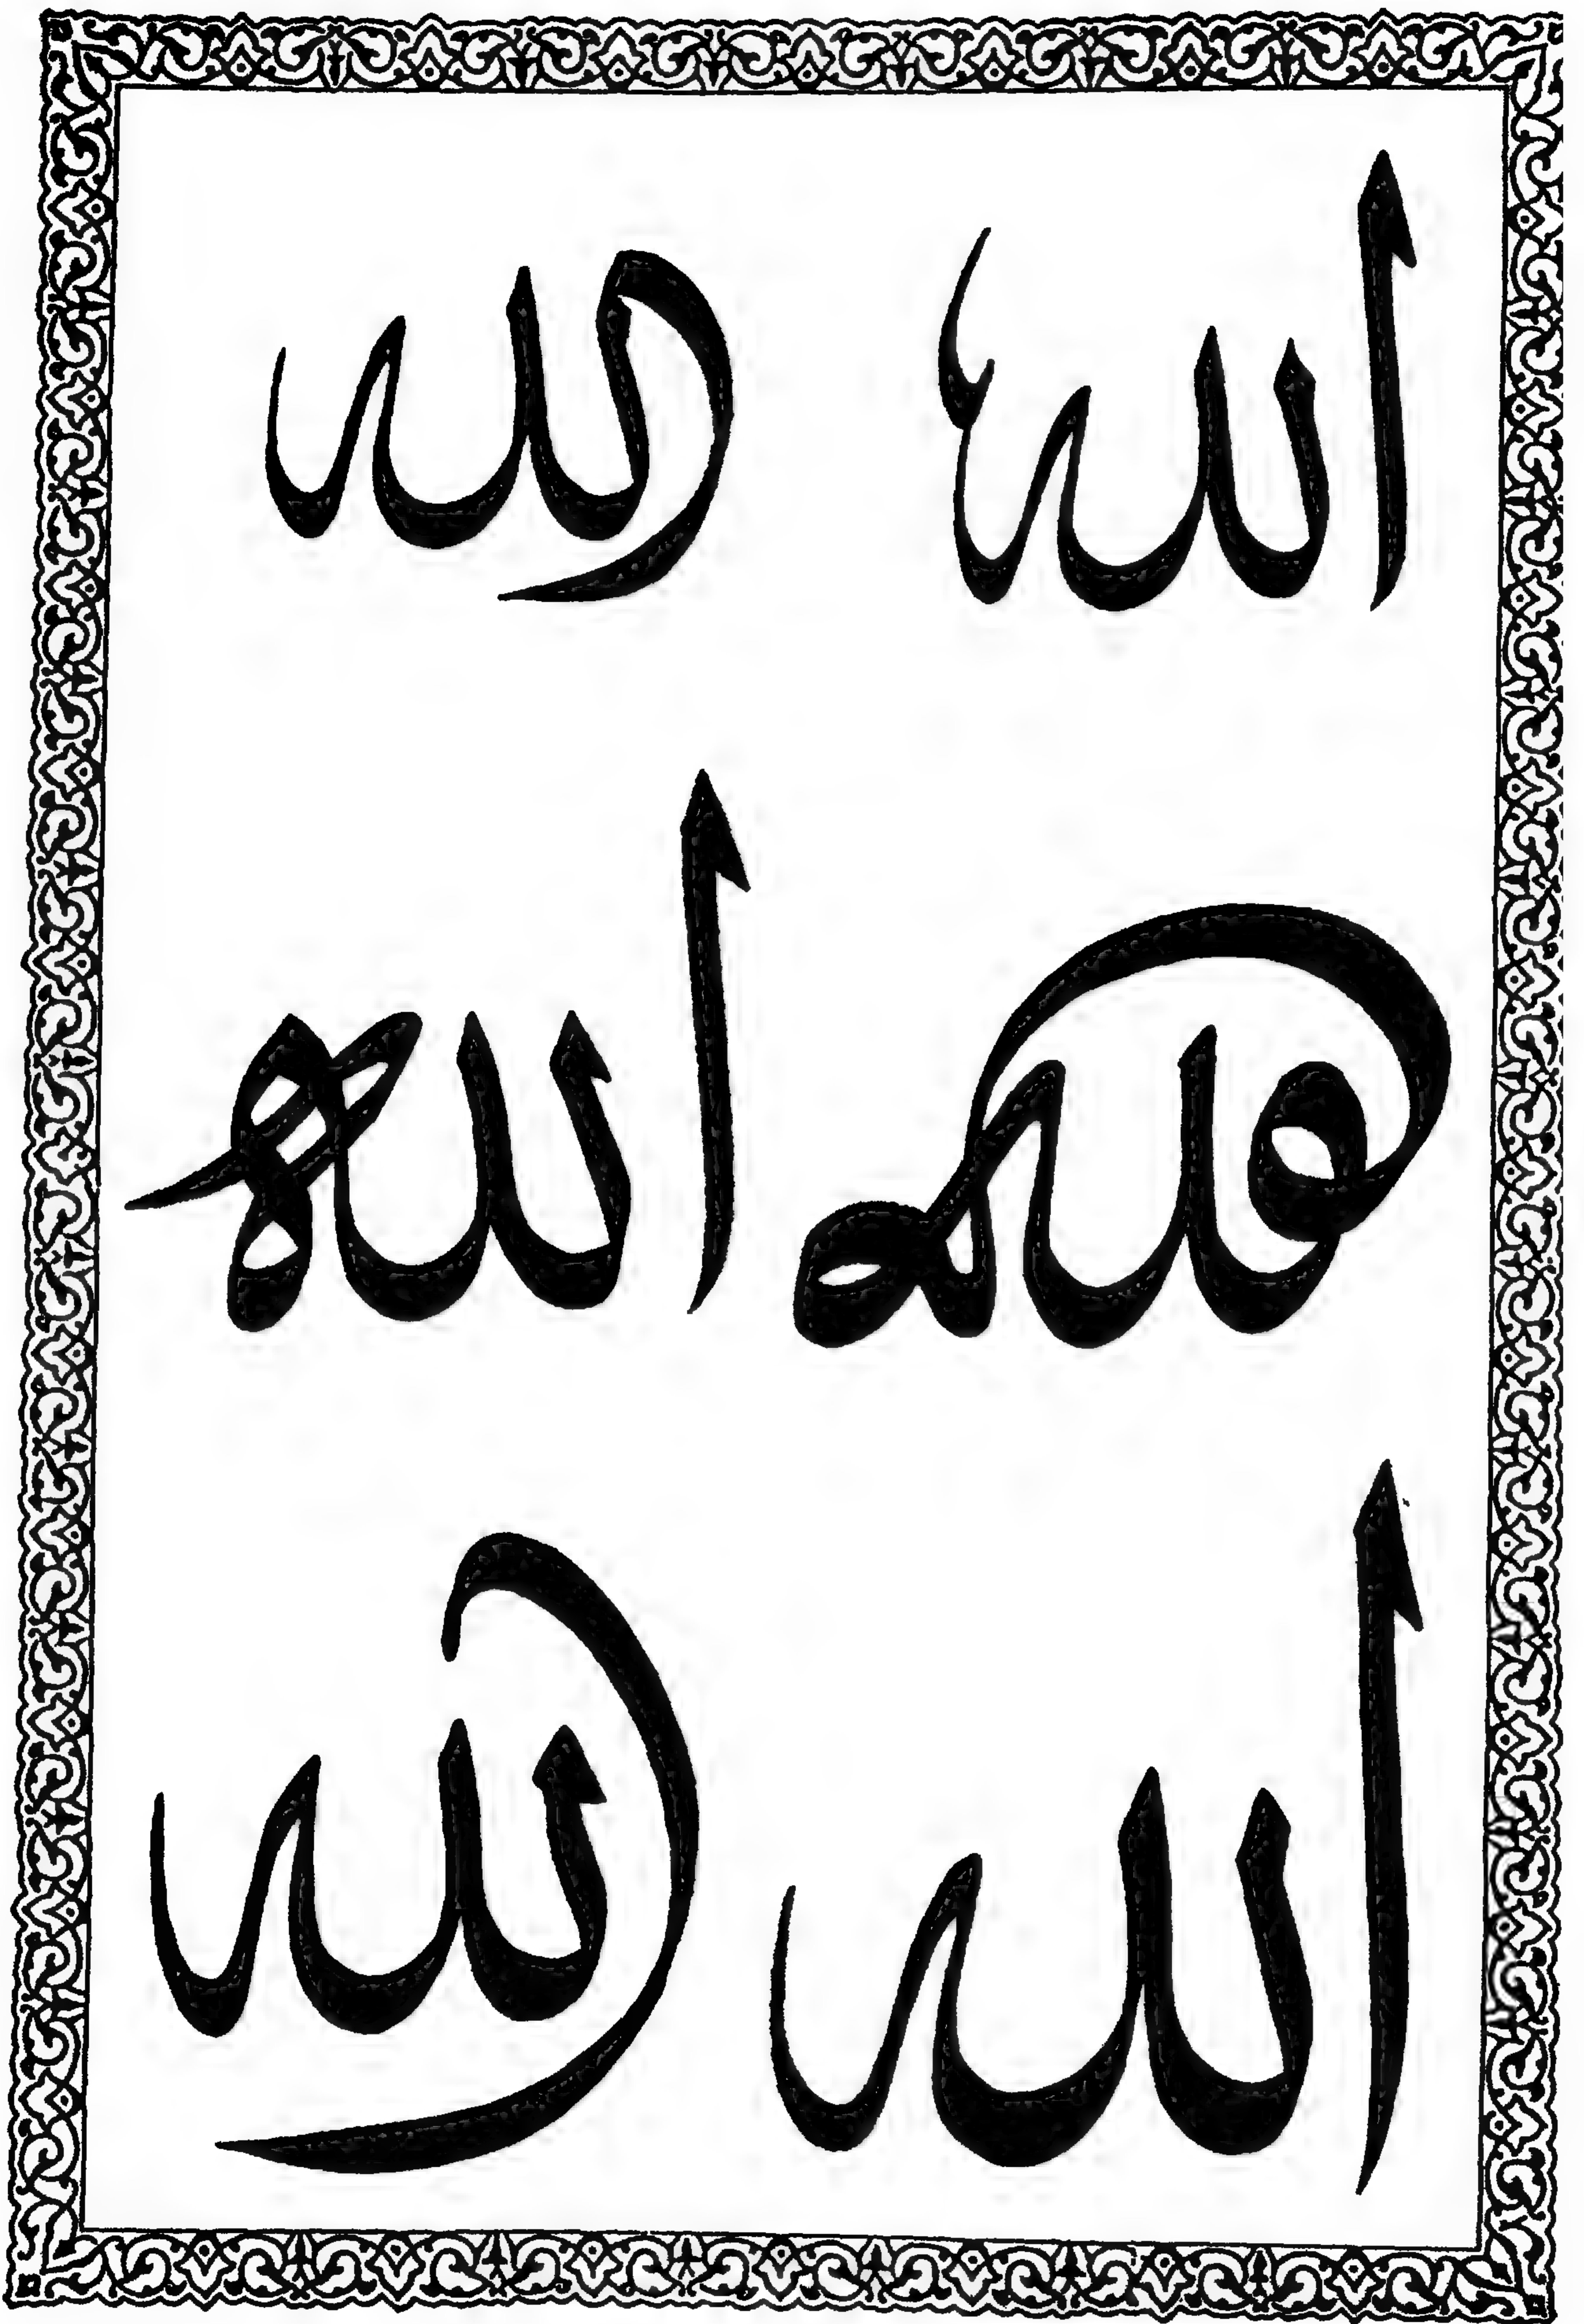 الله الله
الله الله
الله الله